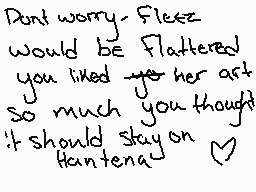 Dont worry - Fleez
would be flattered
you liked yo her art
so much you thought
it should stay on
Hantena